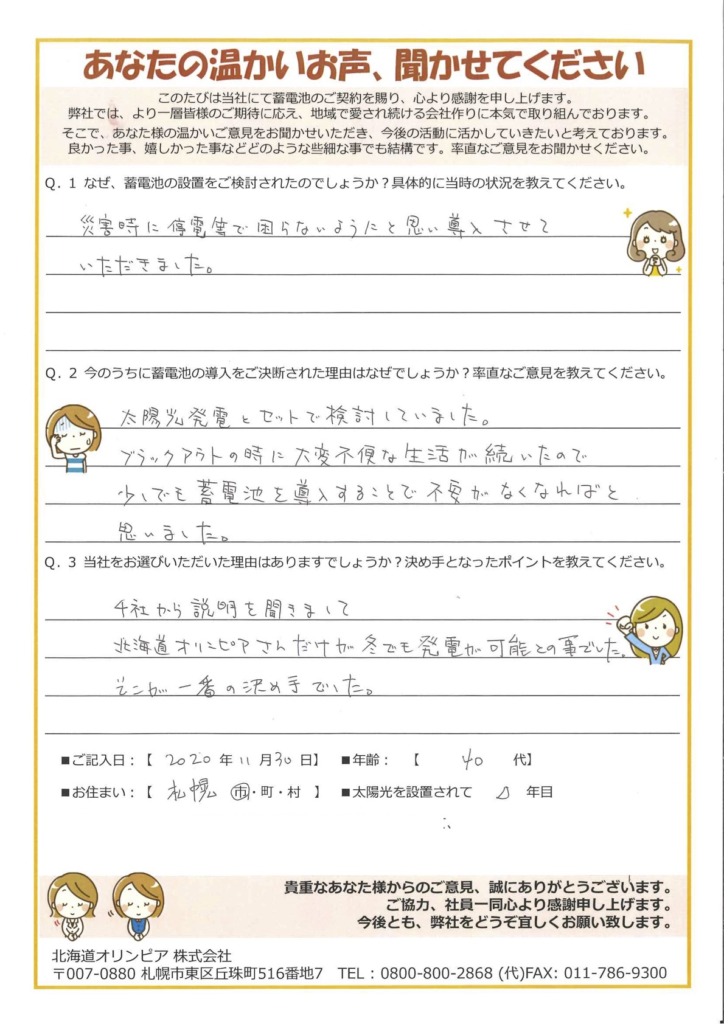 あなたの温かいお声、聞かせてください
このたびは当社にて蓄電池のご契約を賜り、心より感謝を申し上げます。
弊社では、より一層皆様のご期待に応え、地域で愛され続ける会社作りに本気で取り組んでおります。
そこで、あなた様の温かいご意見をお聞かせいただき、今後の活動に活かしていきたいと考えております。
良かった事、嬉しかった事などどのような些細な事でも結構です。率直なご意見をお聞かせください。
Q．1 なぜ、蓄電池の設置をご検討されたのでしょうか？具体的に当時の状況を教えてください。
災害時に停電等で困らないようにと思い導入させて
いただきました。
Q．2 今のうちに蓄電池の導入をご決断された理由はなぜでしょうか？率直なご意見を教えてください。
太陽光発電とセットで検討していました。
ブラックアウトの時に大変不便な生活が続いたので
少しでも蓄電池を導入することで不要がなくなればと
思いました。
Q．3 当社をお選びいただいた理由はありますでしょうか？決め手となったポイントを教えてください。
4社から説明を聞きまして
北海道オリンピアさんだけが冬でも発電が可能との事でした。
そこが一番の決め手でした。
■ご記入日：【 2020 年 11 月 30 日】 ■年齢： 【 40 代】
■お住まい：【 札幌 市・町・村 】 ■太陽光を設置されて 年目
貴重なあなた様からのご意見、誠にありがとうございます。
ご協力、社員一同心より感謝申し上げます。
今後とも、弊社をどうぞ宜しくお願い致します。
北海道オリンピア 株式会社
〒007-0880 札幌市東区丘珠町516番地7 TEL：0800-800-2868 (代)FAX: 011-786-9300